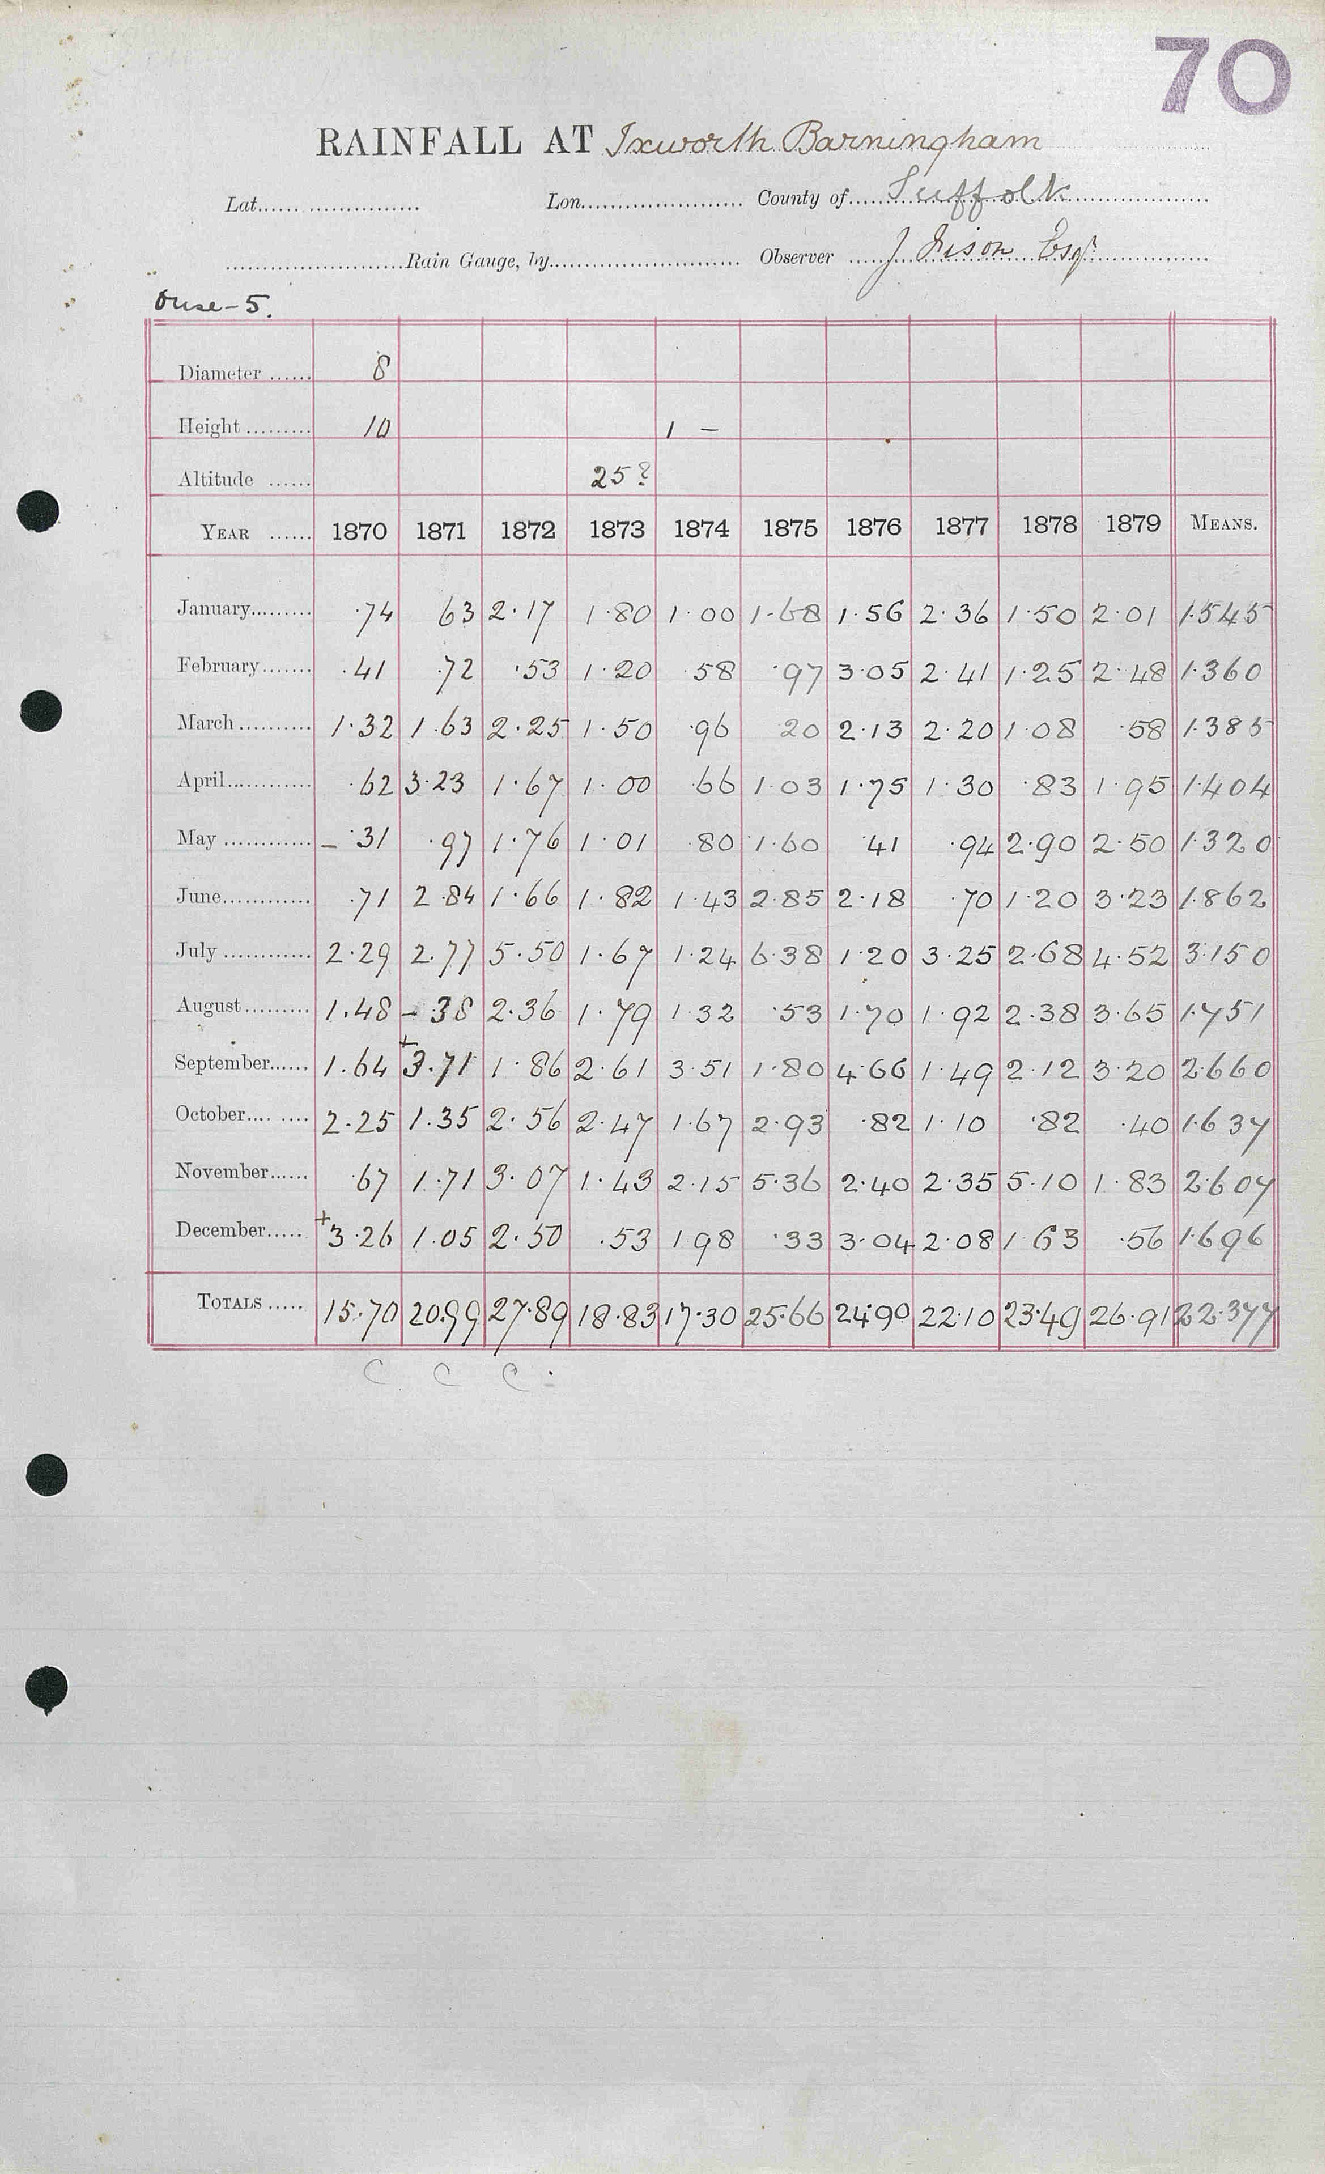 70
RAINFALL AT Ixworth Barningham
Lat. Lon. County of Suffolk
Rain Gauge, by Observer J Fison Esqr
Ouse-5.
Diameter 8
Height 10 1 -
Altitude 25?
YEAR 1870 1871 1872 1873 1874 1875 1876 1877 1878 1879 MEANS.
January ·74 63 2·17 1·80 1·00 1·68 1·56 2·36 1·50 2·01 1·545
February ·41 ·72 ·53 1·20 ·58 ·97 3·05 2·41 1·25 2·48 1·360
March 1·32 1·63 2·25 1·50 ·96 20 2·13 2·20 1·08 ·58 1·385
April ·62 3·23 1·67 1·00 ·66 1·03 1·75 1·30 ·83 1·95 1·404
May - ·31 ·97 1·76 1·01 ·80 1·60 41 ·94 2·90 2·50 1·320
June ·71 2·84 1·66 1·82 1·43 2·85 2·18 ·70 1·20 3·23 1·862
July 2·29 2·77 5·50 1·67 1·24 6·38 1·20 3·25 2·68 4·52 3·150
August 1·48 - ·38 2·36 1·79 1·32 ·53 1·70 1·92 2·38 3·65 1·751
September 1·64 +3·71 1·86 2·61 3·51 1·80 4·66 1·49 2·12 3·20 2·660
October 2·25 1·35 2·56 2·47 1·67 2·93 ·82 1·10 ·82 ·40 1·637
November ·67 1·71 3·07 1·43 2·15 5·36 2·40 2·35 5·10 1·83 2·607
December +3·26 1·05 2·50 ·53 1 98 ·33 3·04 2·08 1·63 ·56 1·696
TOTALS 15·70 20·99 27·89 18·83 17·30 25·66 24·90 22·10 23·49 26·91 22·377
C C C